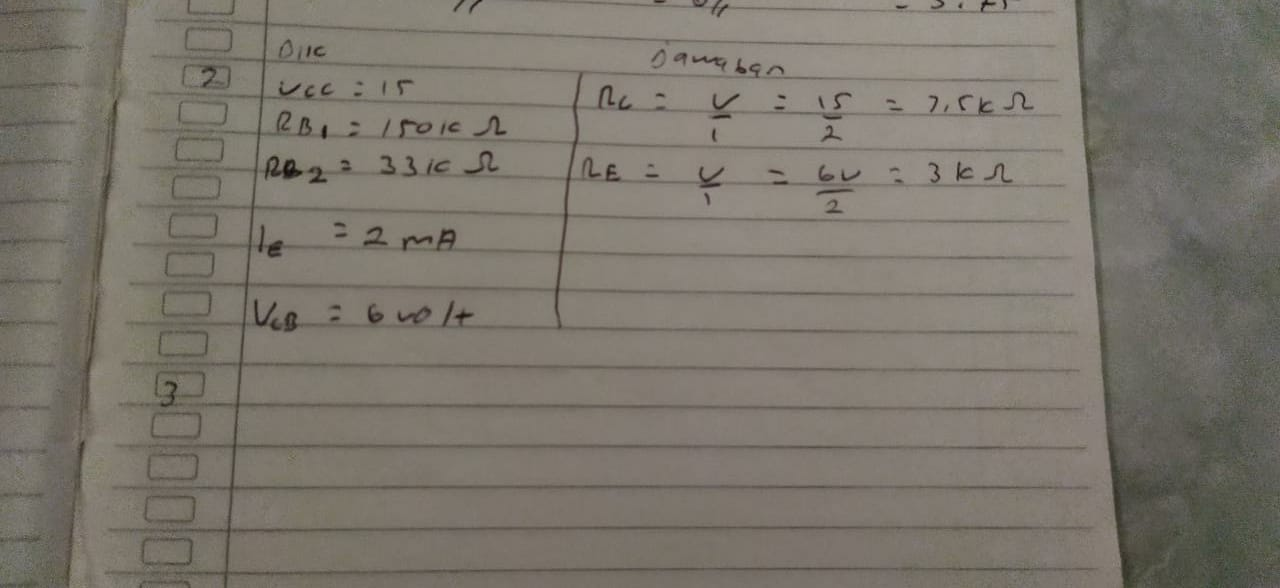 2
Dik
VCC = 15
RB1 = 150 K Ω
RB2 = 33 K Ω
IE = 2 mA
VCB = 6 volt
Jawaban
RC = V/1 = 15/2 = 7,5 K Ω
RE = V/1 = 6V/2 = 3 K Ω
3